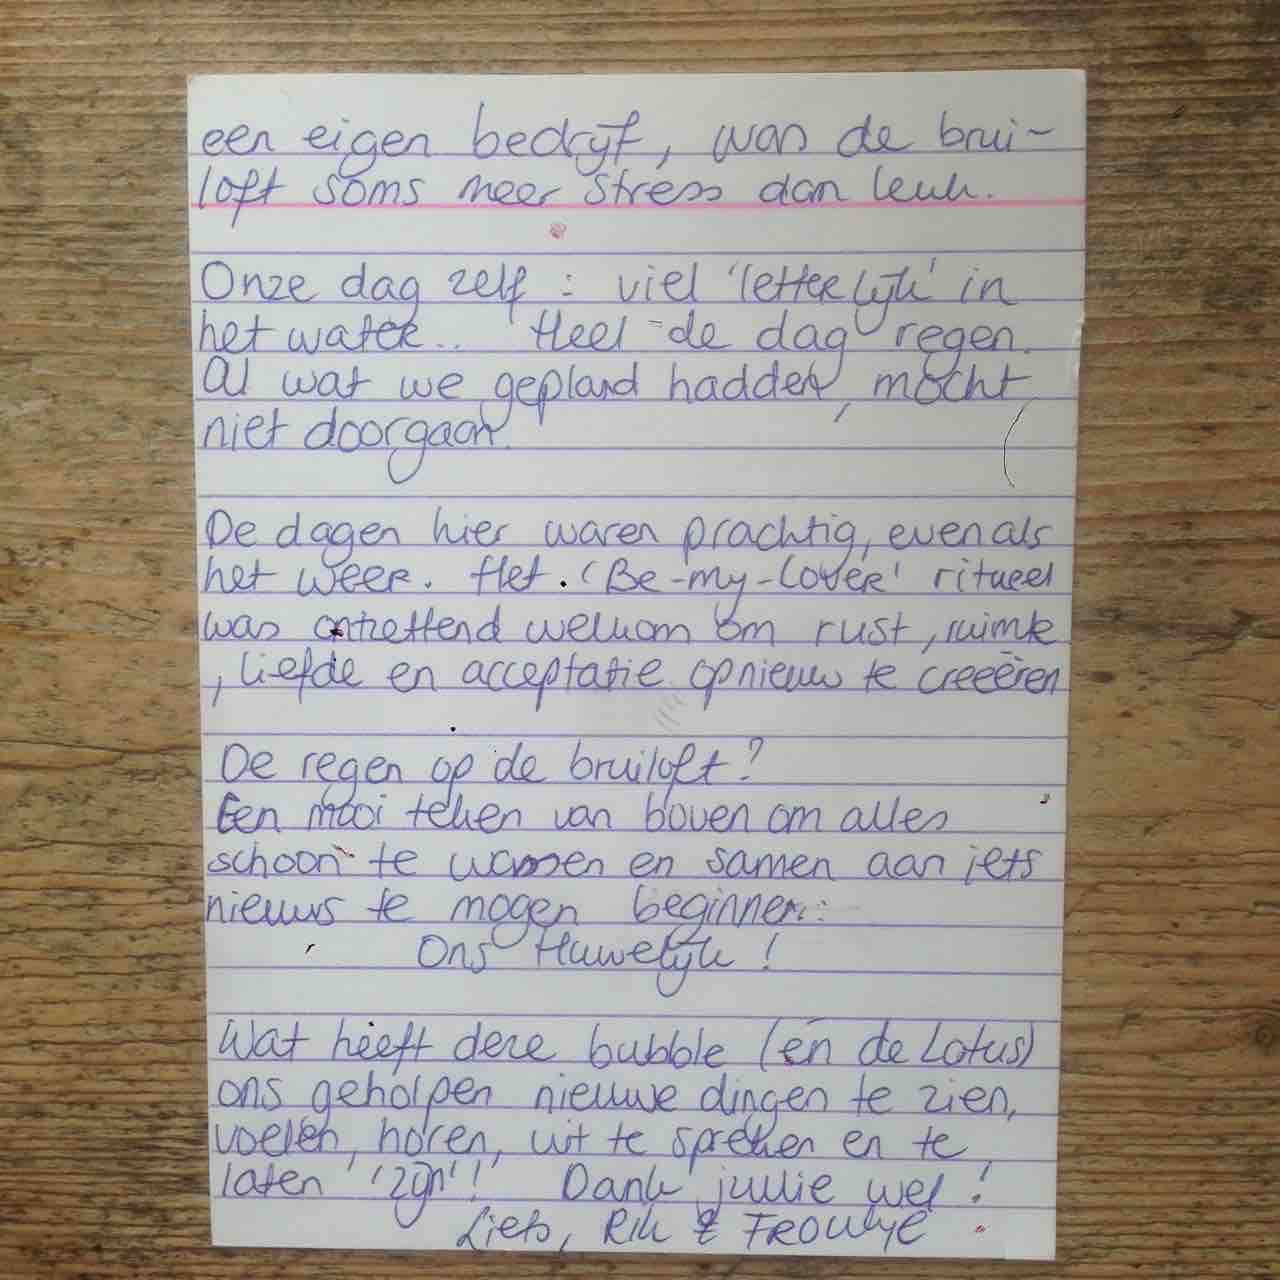 een eigen bedrijf, was de brui-
loft soms meer stress dan leuk.
Onze dag zelf : viel 'letterlijk' in
het water.. Heel de dag regen.
Al wat we gepland hadden, mocht
niet doorgaan.
De dagen hier waren prachtig, evenals
het weer. Het 'Be-my-Lover' ritueel
was ontzettend welkom om rust, ruimte
, liefde en acceptatie opnieuw te creeëren
De regen op de bruiloft?
Een mooi teken van boven om alles
schoon te wassen en samen aan iets
nieuws te mogen beginnen:
Ons Huwelijk!
Wat heeft deze bubble (én de Lotus)
ons geholpen nieuwe dingen te zien,
voelen, horen, uit te spreken en te
laten 'zijn'! Dank jullie wel!
Liefs, Rik & Frouwje